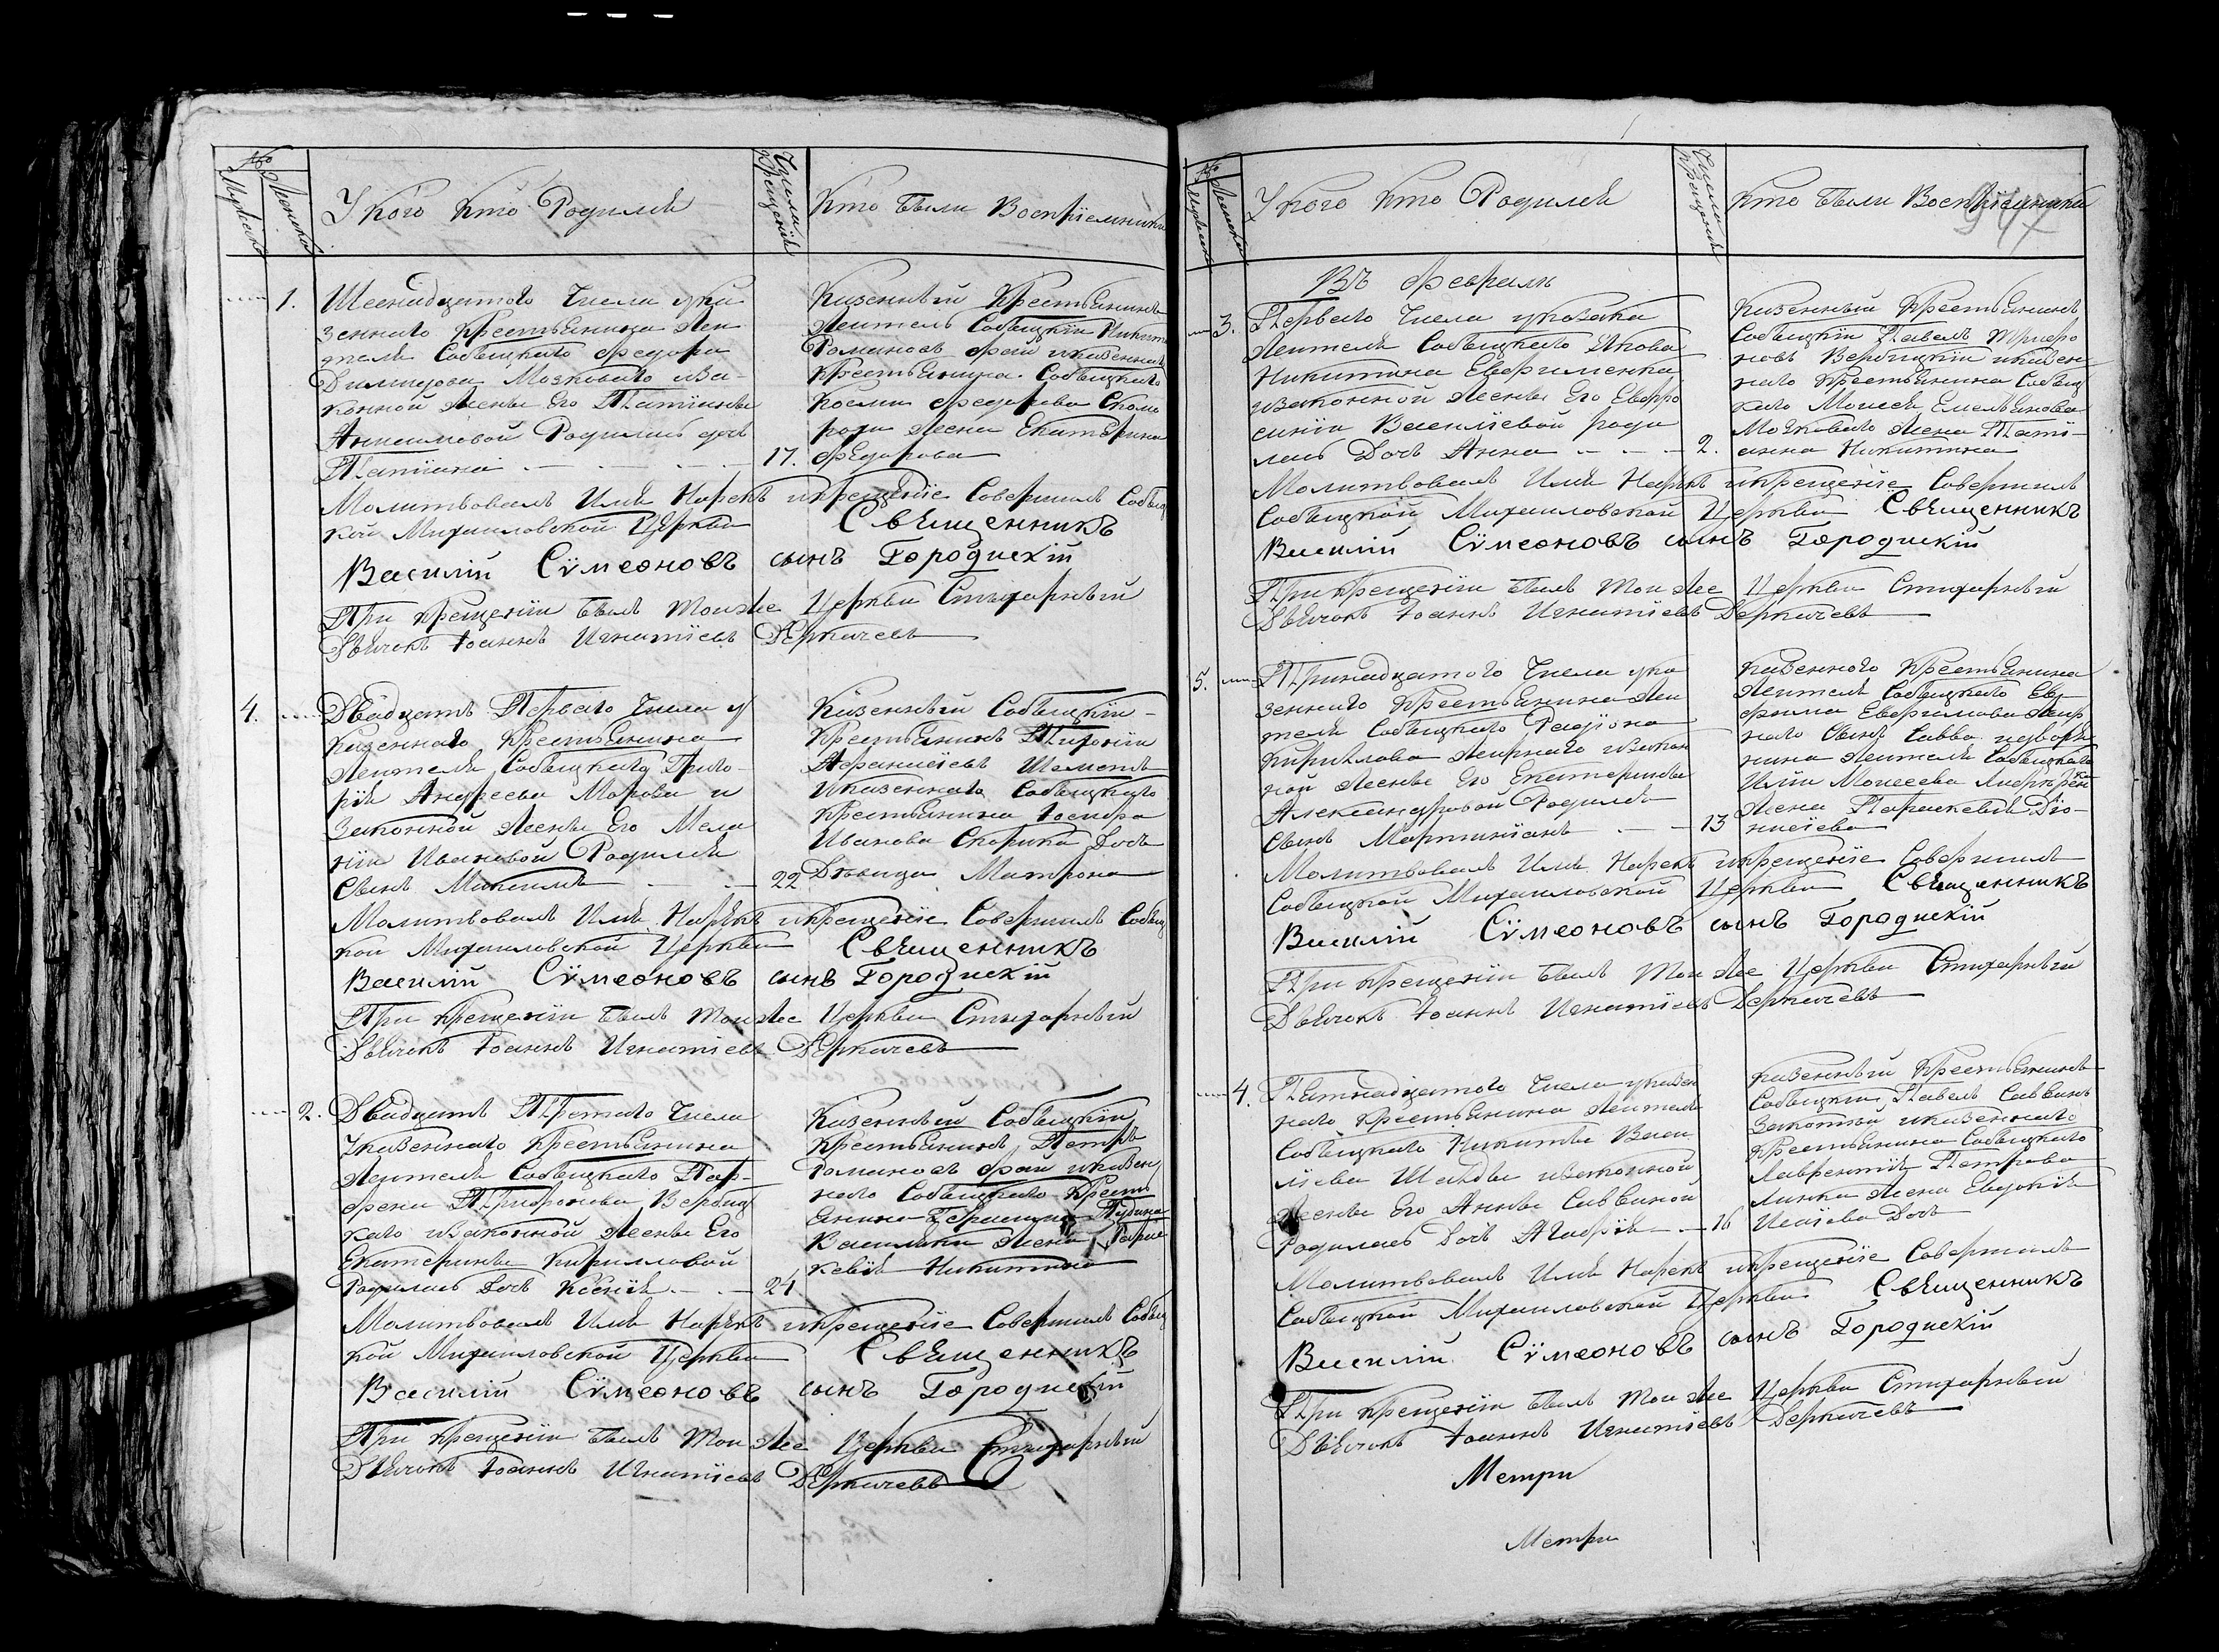 №
Мужеска
Женска
У кого кто Родился
Число Крещенія
Кто были Восприемники
1. Шеснадцатого Числа ука
зеннаго Крестьянина Жи
теля Собыцкаго Федора
Моековаго иза
конной жены Его Татіаны
Анисимовой Родилась дочь
Татіана
17.
Казенный Крестьянинъ
Житель Собыцкій Никита
Романовъ Фай иказеннаго
Крестьянина Собыцкаго
Космы Федорова Скомо
рохи жена Екатерина
Федорова
Молитвовалъ Имя Нарекъ икрещеніе Совершилъ Собыц
кой Михаиловской Церкви Священникъ
Василій Сѵмеоновъ сынъ Городискій
При крещеніи былъ тоижъ Церкви Стихарный
Дьячокъ Іоаннъ Игнатіевъ Деркачевъ
4. Двадцать Перваго Числа у
Казеннаго Крестьянина
Жителя Собыцкаго Григо
рія Андреева Марова и
Законной жены Его Мела
ніи Ивановой Родился
Сынъ Максимъ
22
Казенный Собыцкій
Крестьянинъ
Афанасіевъ
Иказеннаго Собыцкаго
Крестьянина Іосифа
Иванова Скорика Дочь
Дѣвица Матрона
Молитвовалъ Имя Нарекъ икрещеніе Совершилъ Собыц
кой Михаиловской Церкви Священникъ
Василій Сѵмеоновъ сынъ Городискій
При крещеніи былъ тоиже Церкви Стихарный
Дьячокъ Іоаннъ Игнатіевъ Деркачевъ
2. Двадцать Третьяго Числа
Указеннаго Крестьянина
Жителя Собыцкаго Пар
фена Трифонова Вербиц
каго изаконной жены Его
Екатерины Кирилловой
Родилась Дочь Ксенія
24
Казенный Собыцкій
Крестьянинъ Петръ
Романовъ Фай иказен
наго Собыцкаго Кресть
янина Герасима
жена Парас
кевія Никитина
Молитвовалъ Имя Нарекъ икрещеніе Совершилъ Собыц
кой Михаиловской Церкви Священникъ
Василій Сѵмеоновъ сынъ Городискій
При крещеніи былъ тоиже Церкви Стихарный
Дьячокъ Іоаннъ Игнатіевъ Деркачевъ
№
Мужеска
Женска
У кого кто Родился
Число Крещенія
Кто были Восприемники
947
Въ Февралѣ
3. Перваго Числа указака
Жителя Собыцкаго Якова
Никитина Евфименка
изаконной жены Его Евфро
синіи Василіевой роди
лась Дочь Анна
2.
Казенный Крестьянинъ
Собыцкій Павелъ Трифо
новъ Вербицкій иказен
наго Крестьянина Собыц
каго Моисея Емельянова
Моековаго жена Тати
анна Никитина
Молитвовалъ Имя Нарекъ икрещеніе Совершилъ
Собыцкой Михаиловской Церкви Священникъ
Василій Сѵмеоновъ сынъ Городискій
При крещеніи былъ тоиже Церкви Стихарный
Дьячокъ Іоаннъ Игнатіевъ Деркачевъ
5. Тринадцатого Числа ука
зеннаго Крестьянина Жи
теля Собыцкаго Родіона
Кирилова Жирнаго изакон
ной жены Его Екатерины
Александровой Родился
Сынъ Мартиніанъ
13
Казенного Крестьянина
Жителя Собыцкаго Ев
фима Евфимова Жир
наго Сынъ Савва идворя
нина Жителя Собыцкаго
Ильи Моисеева
жена Параскевія Діо
нисіева
Молитвовалъ Имя Нарекъ икрещеніе Совершилъ
Собыцкой Михаиловской Церкви Священникъ
Василій Сѵмеоновъ сынъ Городискій
При крещеніи былъ тоиже Церкви Стихарный
Дьячокъ Іоаннъ Игнатіевъ Деркачевъ
4. Пятнадцатого Числа указен
наго Крестьянина Жителя
Собыцкаго Никиты Васи
ліева изаконной
жены Его Анны Саввиной
Родилась Дочь Агафія
16
Казенный Крестьянинъ
Собыцкій Павелъ Саввинъ
иказеннаго
Крестьянина Собыцкаго
Лаврентія Петрова
жена Евдокія
Исаіева Дочь
Молитвовалъ Имя Нарекъ икрещеніе Совершилъ
Собыцкой Михаиловской Церкви Священникъ
Василій Сѵмеоновъ сынъ Городискій
При крещеніи былъ тоиже Церкви Стихарный
Дьячокъ Іоаннъ Игнатіевъ Деркачевъ
Метри
Метри